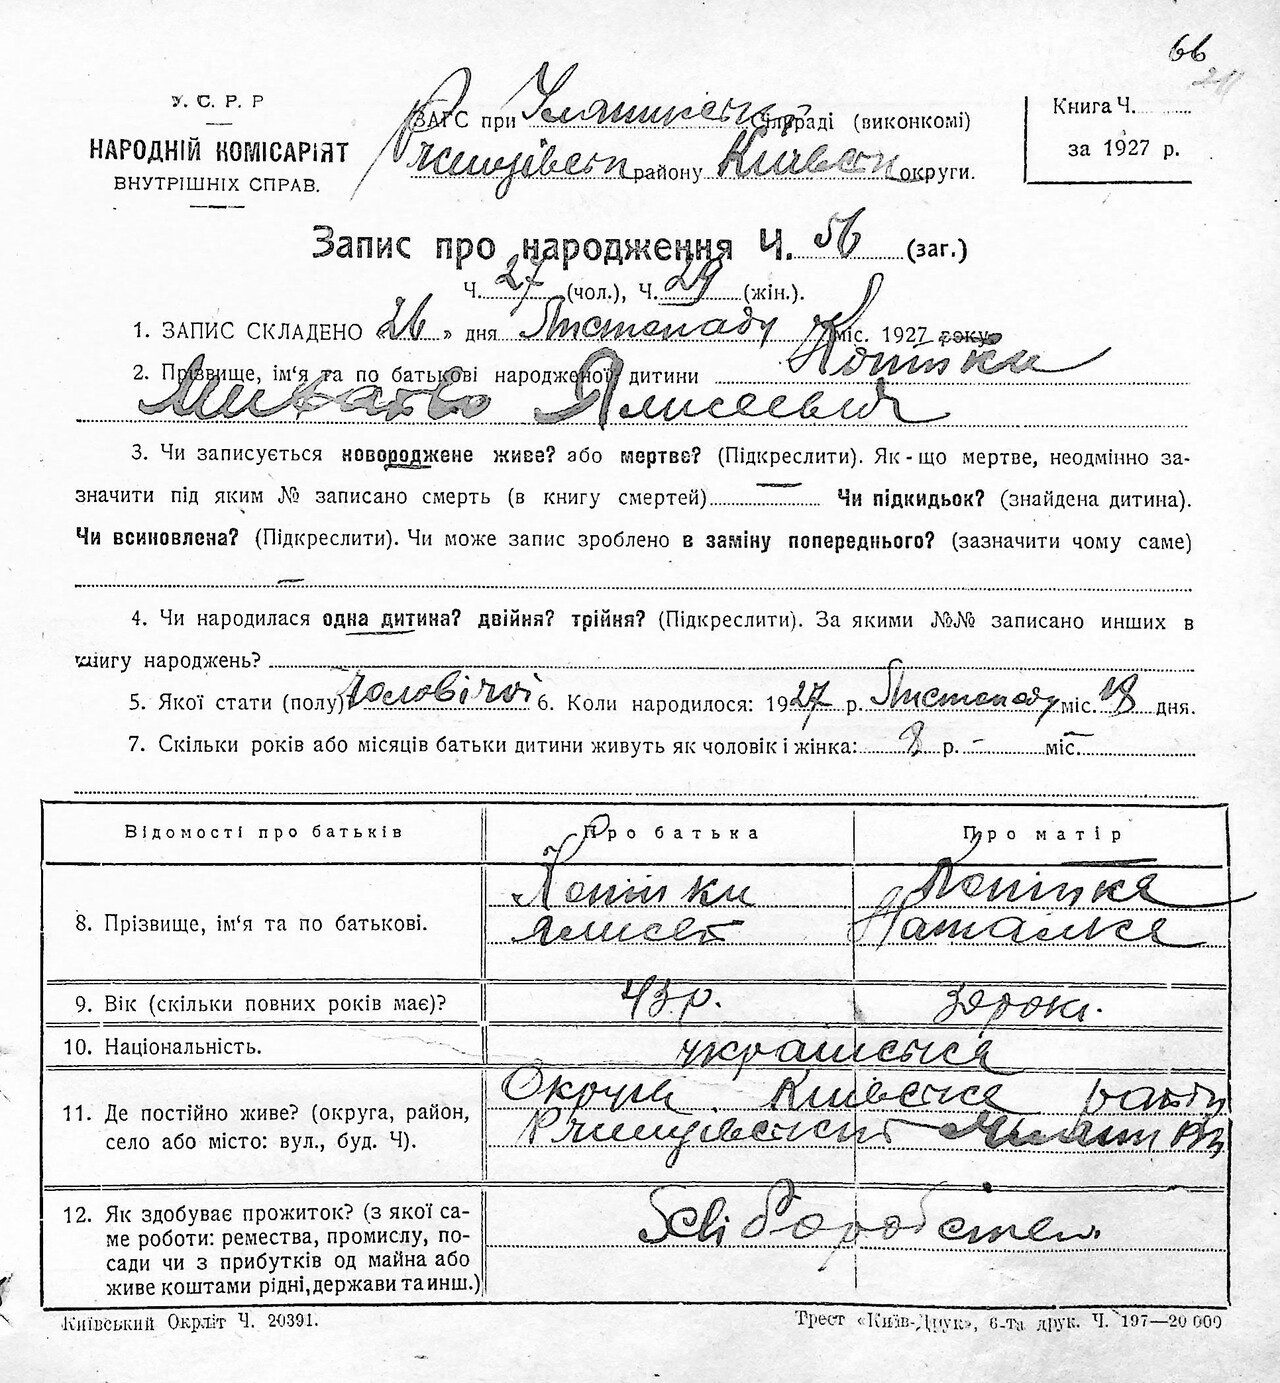 66
211
У. С. Р. Р
НАРОДНІЙ КОМІСАРІЯТ
ВНУТРІШНІХ СПРАВ.
ЗАГС при сільраді (виконкомі)
району округи.
Книга Ч.
за 1927 р.
Запис про народження Ч. 56 (заг.)
Ч. 27 (чол.), Ч. 29 (жін.).
1. ЗАПИС СКЛАДЕНО «26» дня Листопаду міс. 1927 року
2. Прізвище, ім‘я та по батькові народженої дитини Копійки
3. Чи записується новороджене живе? або мертве? (Підкреслити). Як-що мертве, неодмінно за-
значити під яким № записано смерть (в книгу смертей) — Чи підкидьок? (знайдена дитина).
Чи всиновлена? (Підкреслити). Чи може запис зроблено в заміну попереднього? (зазначити чому саме)
—
4. Чи народилася одна дитина? двійня? трійня? (Підкреслити). За якими №№ записано инших в
книгу народжень?
5. Якої стати (полу) чоловічої 6. Коли народилося: 1927 р. Листопаду міс. 18 дня.
7. Скільки років або місяців батьки дитини живуть як чоловік і жінка: 8 р. – міс.
Відомості про батьків Про батька Про матір
8. Прізвище, ім‘я та по батькові.
Копійки Копійка
Ялисей Наталка
9. Вік (скільки повних років має)? 43 р. роки.
10. Національність. українська
11. Де постійно живе? (округа, район,
село або місто: вул., буд. Ч).
Округи Київська район
Ржищівський
12. Як здобуває прожиток? (з якої са-
ме роботи: ремества, промислу, по-
сади чи з прибутків од майна або
живе коштами рідні, держави та инш.)
Київський Окрліт Ч. 20391.
Трест «Київ-Друк», 6-та друк. Ч. 197—20 000